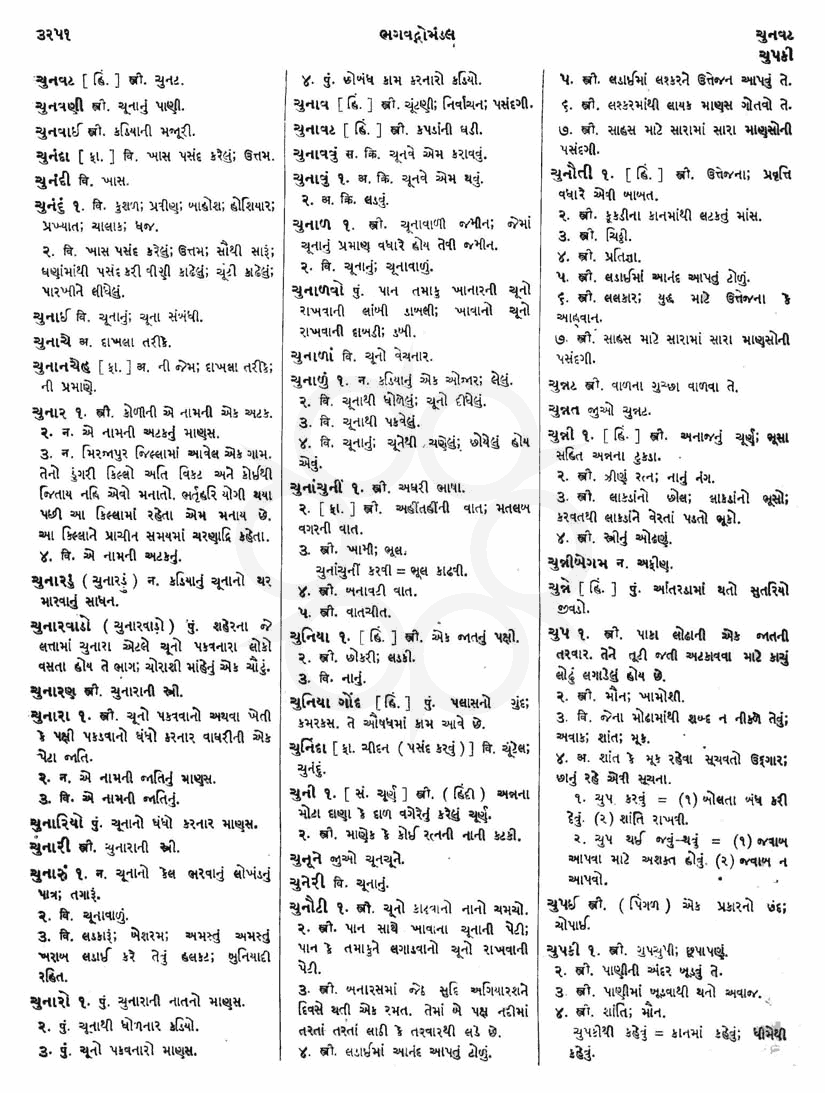 ૩૨૫૧
ભગવદ્ગોમંડલ
ચુનવટ
ચુપકી
ચુનવટ [ હિં. ] સ્રી. ચુનટ.
ચુનવણી સ્રી. ચૂનાનું પાણી.
ચુનવાઈ સ્રી. કડિયાની મજૂરી.
ચુનંદા [ ફા. ] વિ. ખાસ પસંદ કરેલું; ઉત્તમ.
ચુનંદી વિ. ખાસ.
ચુનંદું ૧. વિ. કુશળ; પ્રવીણ; બાહોશ; હોશિયાર;
પ્રખ્યાત; ચાલાક; ધજ.
૨. વિ. ખાસ પસંદ કરેલું; ઉત્તમ; સૌથી સારૂં;
ઘણાંમાંથી પસંદ કરી વીણી કાઢેલું; ચૂંટી કાઢેલું;
પારખીને લીધેલું.
ચુનાઈ વિ. ચૂનાનું; ચૂના સંબંધી.
ચુનાચે અ. દાખલા તરીકે.
ચુનાનચેહ [ ફા. ] અ. ની જેમ; દાખલા તરીકે;
ની પ્રમાણે.
ચુનાર ૧. સ્રી. કોળીની એ નામની એક અટક.
૨. ન. એ નામની અટકનું માણસ.
૩. ન. મિરજાપુર જિલ્લામાં આવેલ એક ગામ.
તેનો ડુંગરી કિલ્લો અતિ વિકટ અને કોઈથી
જિતાય નહિ એવો મનાતો. ભર્તૃહરિ યોગી થયા
પછી આ કિલ્લામાં રહેતા એમ મનાય છે.
આ કિલ્લાને પ્રાચીન સમયમાં ચરણાદ્રિ કહેતા.
૪. વિ. એ નામની અટકનું.
ચુનારડું ( ચુનારડું ) ન. કડિયાનું ચૂનાનો થર
મારવાનું સાધન.
ચુનારવાડો ( ચુનારવાડો ) પું. શહેરના જે
લત્તામાં ચુનારા એટલે ચૂનો પકવનારા લોકો
વસતા હોય તે ભાગ; ચોરાશી માંહેનું એક ચૌટું.
ચુનારણ સ્રી. ચુનારાની સ્રી.
ચુનારા ૧. સ્રી. ચૂનો પકવવાનો અથવા ખેતી
કે પક્ષી પકડવાનો ધંધો કરનાર વાઘરીની એક
પેટા જાતિ.
૨. ન. એ નામની જાતિનું માણસ.
૩. વિ. એ નામની જાતિનું.
ચુનારિયો પું. ચૂનાનો ધંધો કરનાર માણસ.
ચુનારી સ્રી. ચુનારાની સ્રી.
ચુનારૂં ૧. ન. ચૂનાનો કેલ ભરવાનું લોખંડનું
પાત્ર; તગારૂં.
૨. વિ. ચૂનાવાળું.
૩. વિ. લડકારૂં; બેશરમ; અમસ્તું અમસ્તું
ખરાબ લડાઈ કરે તેવું હલકટ; બુનિયાદી
રહિત.
ચુનારો ૧. પું. ચુનારાની નાતનો માણસ.
૨. પું. ચૂનાથી ધોળનાર કડિયો.
૩. પું. ચૂનો પકવનારો માણસ.
૪. પું. છોબંધ કામ કરનારો કડિયો.
ચુનાવ [ હિં. ] સ્રી. ચૂંટણી; નિર્વાચન; પસંદગી.
ચુનાવટ [ હિં. ] સ્રી. કપડાંની ઘડી.
ચુનાવવું સ. ક્રિ. ચૂનવે એમ કરાવવું.
ચુનાવું ૧. અ. ક્રિ. ચૂનવે એમ થવું.
૨. અ. ક્રિ. લડવું.
ચુનાળ ૧. સ્રી. ચૂનાવાળી જમીન; જેમાં
ચૂનાનું પ્રમાણ વધારે હોય તેવી જમીન.
૨. વિ. ચૂનાનું; ચૂનાવાળું.
ચુનાળવો પું. પાન તમાકુ ખાનારની ચૂનો
રાખવાની લાંબી ડાબલી; ખાવાનો ચૂનો
રાખવાની દાબડી; ડબી.
ચુનાળાં વિ. ચૂનો વેચનાર.
ચુનાળું ૧. ન. કડિયાનું એક ઓજાર; લેલું.
૨. વિ. ચૂનાથી ધોળેલું; ચૂનો દીધેલું.
૩. વિ. ચૂનાથી પકવેલું.
૪. વિ. ચૂનાનું; ચૂનેથી ચણેલું; છોયેલું હોય
એવું.
ચુનાંચુનીં ૧. સ્રી. અઘરી ભાષા.
૨. [ ફા. ] સ્રી. અહીંતહીંની વાત; મતલબ
વગરની વાત.
૩. સ્રી. ખામી; ભૂલ.
ચુનાંચુનીં કરવી = ભૂલ કાઢવી.
૪. સ્રી. બનાવટી વાત.
૫. સ્રી. વાતચીત.
ચુનિયા ૧. [ હિં. ] સ્રી. એક જાતનું પક્ષી.
૨. સ્રી. છોકરી; લડકી.
૩. વિ. નાનું.
ચુનિયા ગોંદ [ હિં. ] પું. પલાસનો ગુંદ;
કમરકસ. તે ઔષધમાં કામ આવે છે.
ચુનિંદા [ ફા. ચીદન ( પસંદ કરવું ) ] વિ. ચૂંટેલ;
ચુનંદું.
ચુની ૧. [ સં. ચૂર્ણ ] સ્રી. ( હિંદી ) અન્નના
મોટા દાણા કે દાળ વગેરેનું કરેલું ચૂર્ણ.
૨. સ્રી. માણેક કે કોઈ રત્નની નાની કટકી.
ચુનૂને જુઓ ચૂનચૂને.
ચુનેરી વિ. ચૂનાનું.
ચુનોટી ૧. સ્રી. ચૂનો કાઢવાનો નાનો ચમચો.
૨. સ્રી. પાન સાથે ખાવાના ચૂનાની પેટી;
પાન કે તમાકુને લગાડવાનો ચૂનો રાખવાની
પેટી.
૩. સ્રી. બનારસમાં જેઠ સુદિ અગિયારશને
દિવસે થતી એક રમત. તેમાં બે પક્ષ નદીમાં
તરતાં તરતાં લાઠી કે તરવારથી લડે છે.
૪. સ્રી. લડાઈમાં આનંદ આપતું ટોળું.
૫. સ્રી. લડાઈમાં લશ્કરને ઉત્તેજન આપવું તે.
૬. સ્રી. લશ્કરમાંથી લાયક માણસ ગોતવો તે.
૭. સ્રી. સાહસ માટે સારામાં સારા માણસોની
પસંદગી.
ચુનૌતી ૧. [ હિં. ] સ્રી. ઉત્તેજના; પ્રવૃત્તિ
વધારે એવી બાબત.
૨. સ્રી. કૂકડીના કાનમાંથી લટકતું માંસ.
૩. સ્રી. ચિઠ્ઠી.
૪. સ્રી. પ્રતિજ્ઞા.
૫. સ્રી. લડાઈમાં આનંદ આપતું ટોળું.
૬. સ્રી. લલકાર; યુદ્ધ માટે ઉત્તેજના કે
આહ્વાન.
૭. સ્રી. સાહસ માટે સારામાં સારા માણસોની
પસંદગી.
ચુન્નટ સ્રી. વાળના ગુચ્છા વાળવા તે.
ચુન્નત જુઓ ચુન્નટ.
ચુન્ની ૧. [ હિં. ] સ્રી. અનાજનું ચૂર્ણ; ભૂસા
સહિત અન્નના ટુકડા.
૨. સ્રી. ઝીણું રત્ન; નાનું નંગ.
૩. સ્રી. લાકડાંનો છોલ; લાકડાંનો ભૂસો;
કરવતથી લાકડાંને વેરતાં પડતો ભૂકો.
૪. સ્રી. સ્રીનું ઓઢણું.
ચુન્નીબેગમ ન. અફીણ.
ચુન્ને [ હિં. ] પું. આંતરડામાં થતો સુતરિયો
જીવડો.
ચુપ ૧. સ્રી. પાકા લોઢાની એક જાતની
તરવાર. તેને તૂટી જતી અટકાવવા માટે કાચું
લોઢું લગાડેલું હોય છે.
૨. સ્રી. મૌન; ખામોશી.
૩. વિ. જેના મોઢામાંથી શબ્દ ન નીકળે તેવું;
અવાક; શાંત; મૂક.
૪. અ. શાંત કે મૂક રહેવા સૂચવતો ઉદ્ગાર;
છાનું રહે એવી સૂચના.
૧. ચુપ કરવું = (૧) બોલતા બંધ કરી
દેવું. (૨) શાંતિ રાખવી.
૨. ચુપ થઈ જવું-થવું = (૧) જવાબ
આપવા માટે અશક્ત હોવું. (૨) જવાબ ન
આપવો.
ચુપઈ સ્રી. ( પિંગળ ) એક પ્રકારનો છંદ;
ચોપાઈ.
ચુપકી ૧. સ્રી. ગુપચુપી; છૂપાપણું.
૨. સ્રી. પાણીની અંદર બૂડવું તે.
૩. સ્રી. પાણીમાં બૂડવાથી થનો અવાજ.
૪. સ્રી. શાંતિ; મૌન.
ચુપકીથી કહેવું = કાનમાં કહેવું; ધીમેથી
કહેવું.